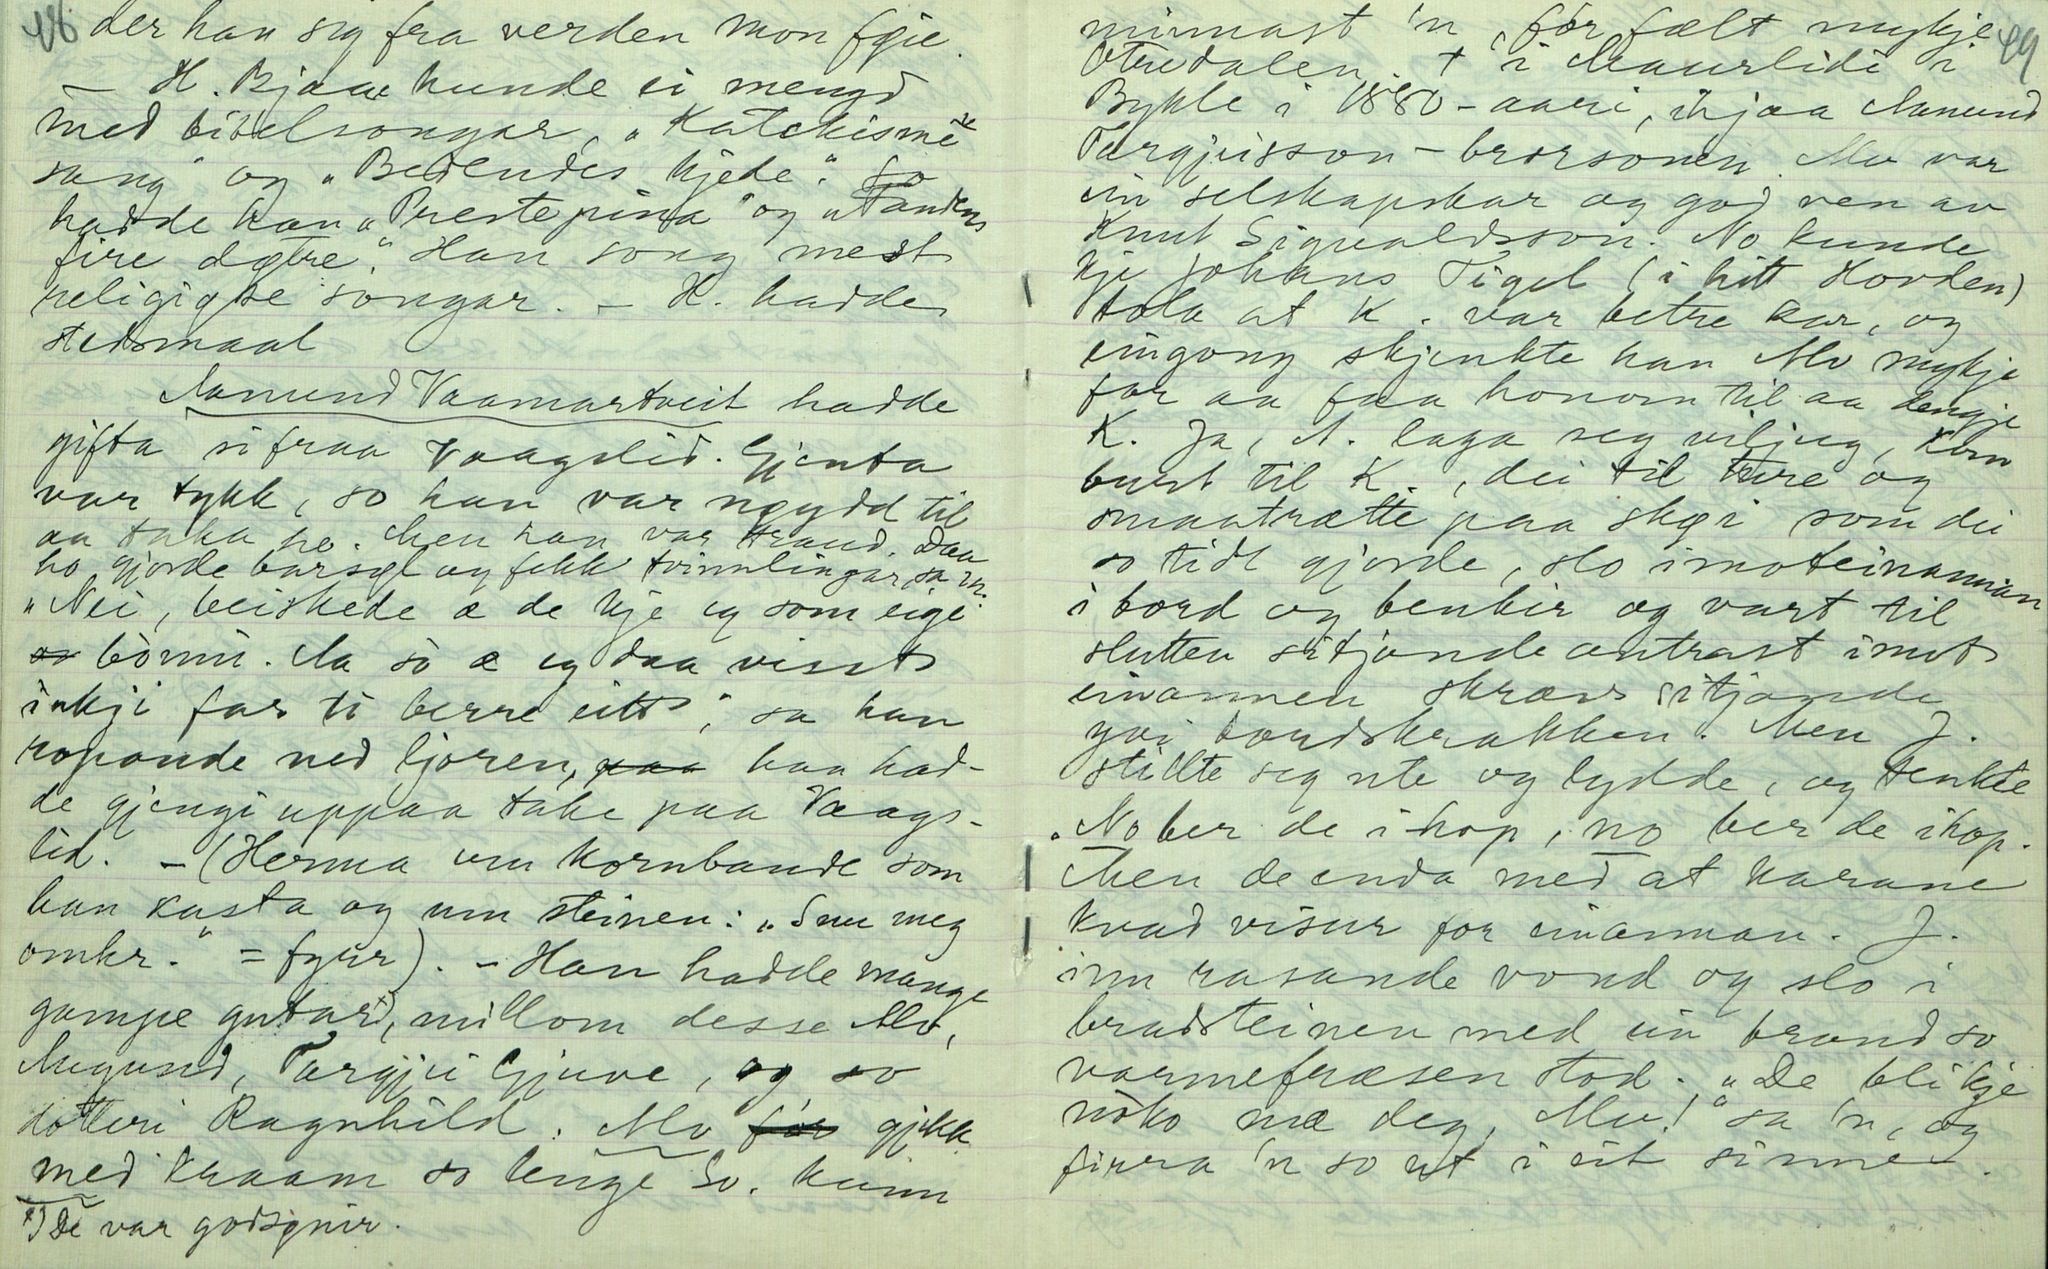 48
der han sig fra verden mon føie.
– H. Bjaae kunde ei mengd
med bibelsongar, "Katekisme
sang" og "Bedendes kjede." So
hadde han "Prestepina" og "Fandens
fire døtre." Han song mest
religiøse songar. – H. hadde
stedsmaal
Aamund Vaamartveit hadde
gifta si fraa Vaagslid. Gjenta
var tykk, so han var nøydd til
aa taka ho. Men han var traud. Daa
ho gjorde barsøl og fekk tvinnlingar, sa 'n:
"Nei, beiskede æ de kje eg som eige
so bònni. Aa sò æ eg daa visst
inkji far ti berre eitt", sa han
ropande ned ljoren, paa han had-
de gjengi uppaa take paa Vaags-
lid. – (Herma um kornbande som
han kasta og um steinen: "Snu meg
omkr." = fyrr). – Han hadde mange
gampe gutar x), millom desse Alv,
Augund, Targjei Gjuve, og so
dotteri Ragnhild. Alv for gjekk
med kraam so lenge So. kunn
x) De var godsønir.
49
minnast 'n, fór fælt mykje
Otredalen. + i Maurlidi i
Bykle i 1880-aari, ihjaa Aamund
Targjeisson – brorsonen. Alv var
ein selskapskar og god ven av
Knut Sigvaldsson. No kunde
kje Johans Tigel (i hitt Hovden)
tola at K. var betre kar, og
eingong skjenkte han Alv mykje
for aa faa honom til aa dengje
K. Ja, A. laga seg viljug, kom
burt til K., dei til ture og
smaatrætte paa skøi som dei
so tidt gjorde, slo imot einannan
i bord og benkir og vart til
slutten sitjande antrast imot
einannen skrævs sitjande
yvi bordskrakken. Men J.
stilte seg ute og lydde, og tenkte
"No ber de ihop, no ber de ihop.
Men de enda med at karane
kvad visur for einannan. J.
inn rasande vond og slo i
bradsteinen med ein brand so
varmefræsen stod. "De bli kje
nòko mæ deg, Alv!" sa 'n, og
firra 'n so ut i eit sinne.